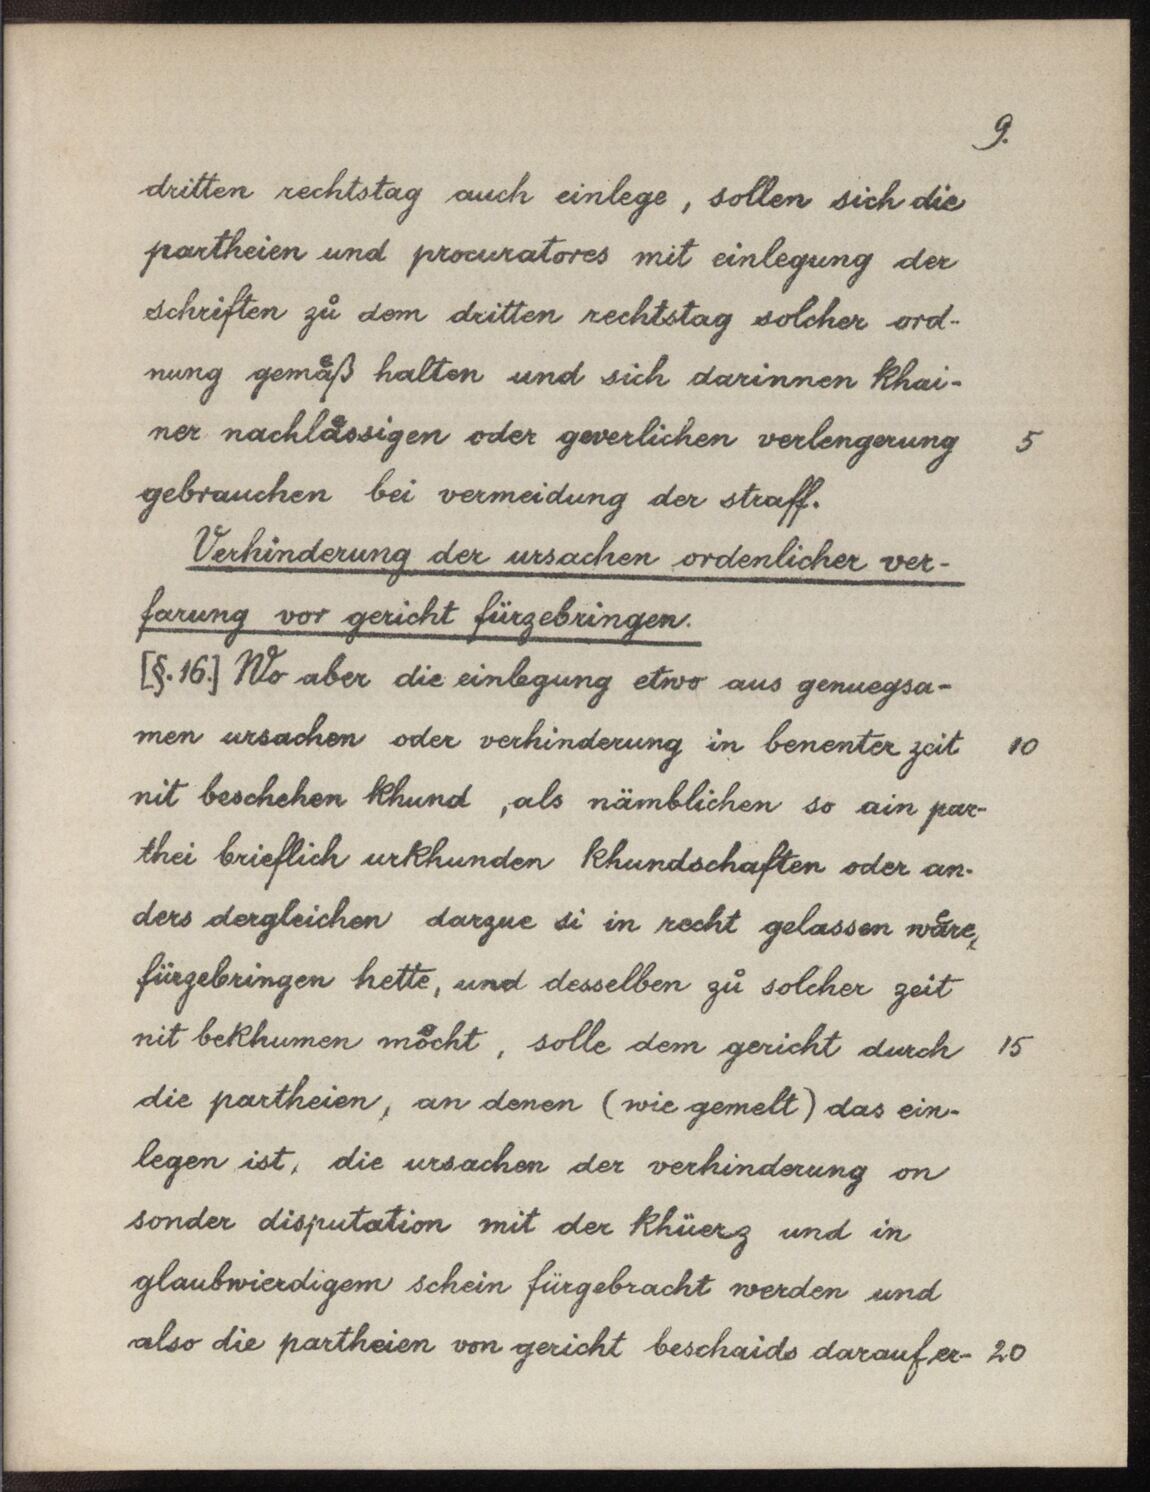 9.
dritten rechtstag auch einlege, sollen sich die
partheien und procuratores mit einlegung der
schriften zů dem dritten rechtstag solcher ord-
nung gemåß halten und sich darinnen khai-
ner nachlåssigen oder geverlichen verlengerung 5
gebrauchen bei vermeidung der straff.
Verhinderung der ursachen ordenlicher ver-
farung vor gericht fürzebringen.
[§. 16.] Wo aber die einlegung etwo aus genuegsa-
men ursachen oder verhinderung in benenter zeit 10
nit beschehen khund, als nämblichen so ain par-
thei brieflich urkhunden khundschaften oder an-
ders dergleichen darzue si in recht gelassen wåre,
fürzebringen hette, und desselben zů solcher zeit
nit bekhumen mo̊cht, solle dem gericht durch 15
die partheien, an denen (wie gemelt) das ein-
legen ist, die ursachen der verhinderung on
sonder disputation mit der khüerz und in
glaubwierdigem schein fürgebracht werden und
also die partheien von gericht beschaids darauf er- 20